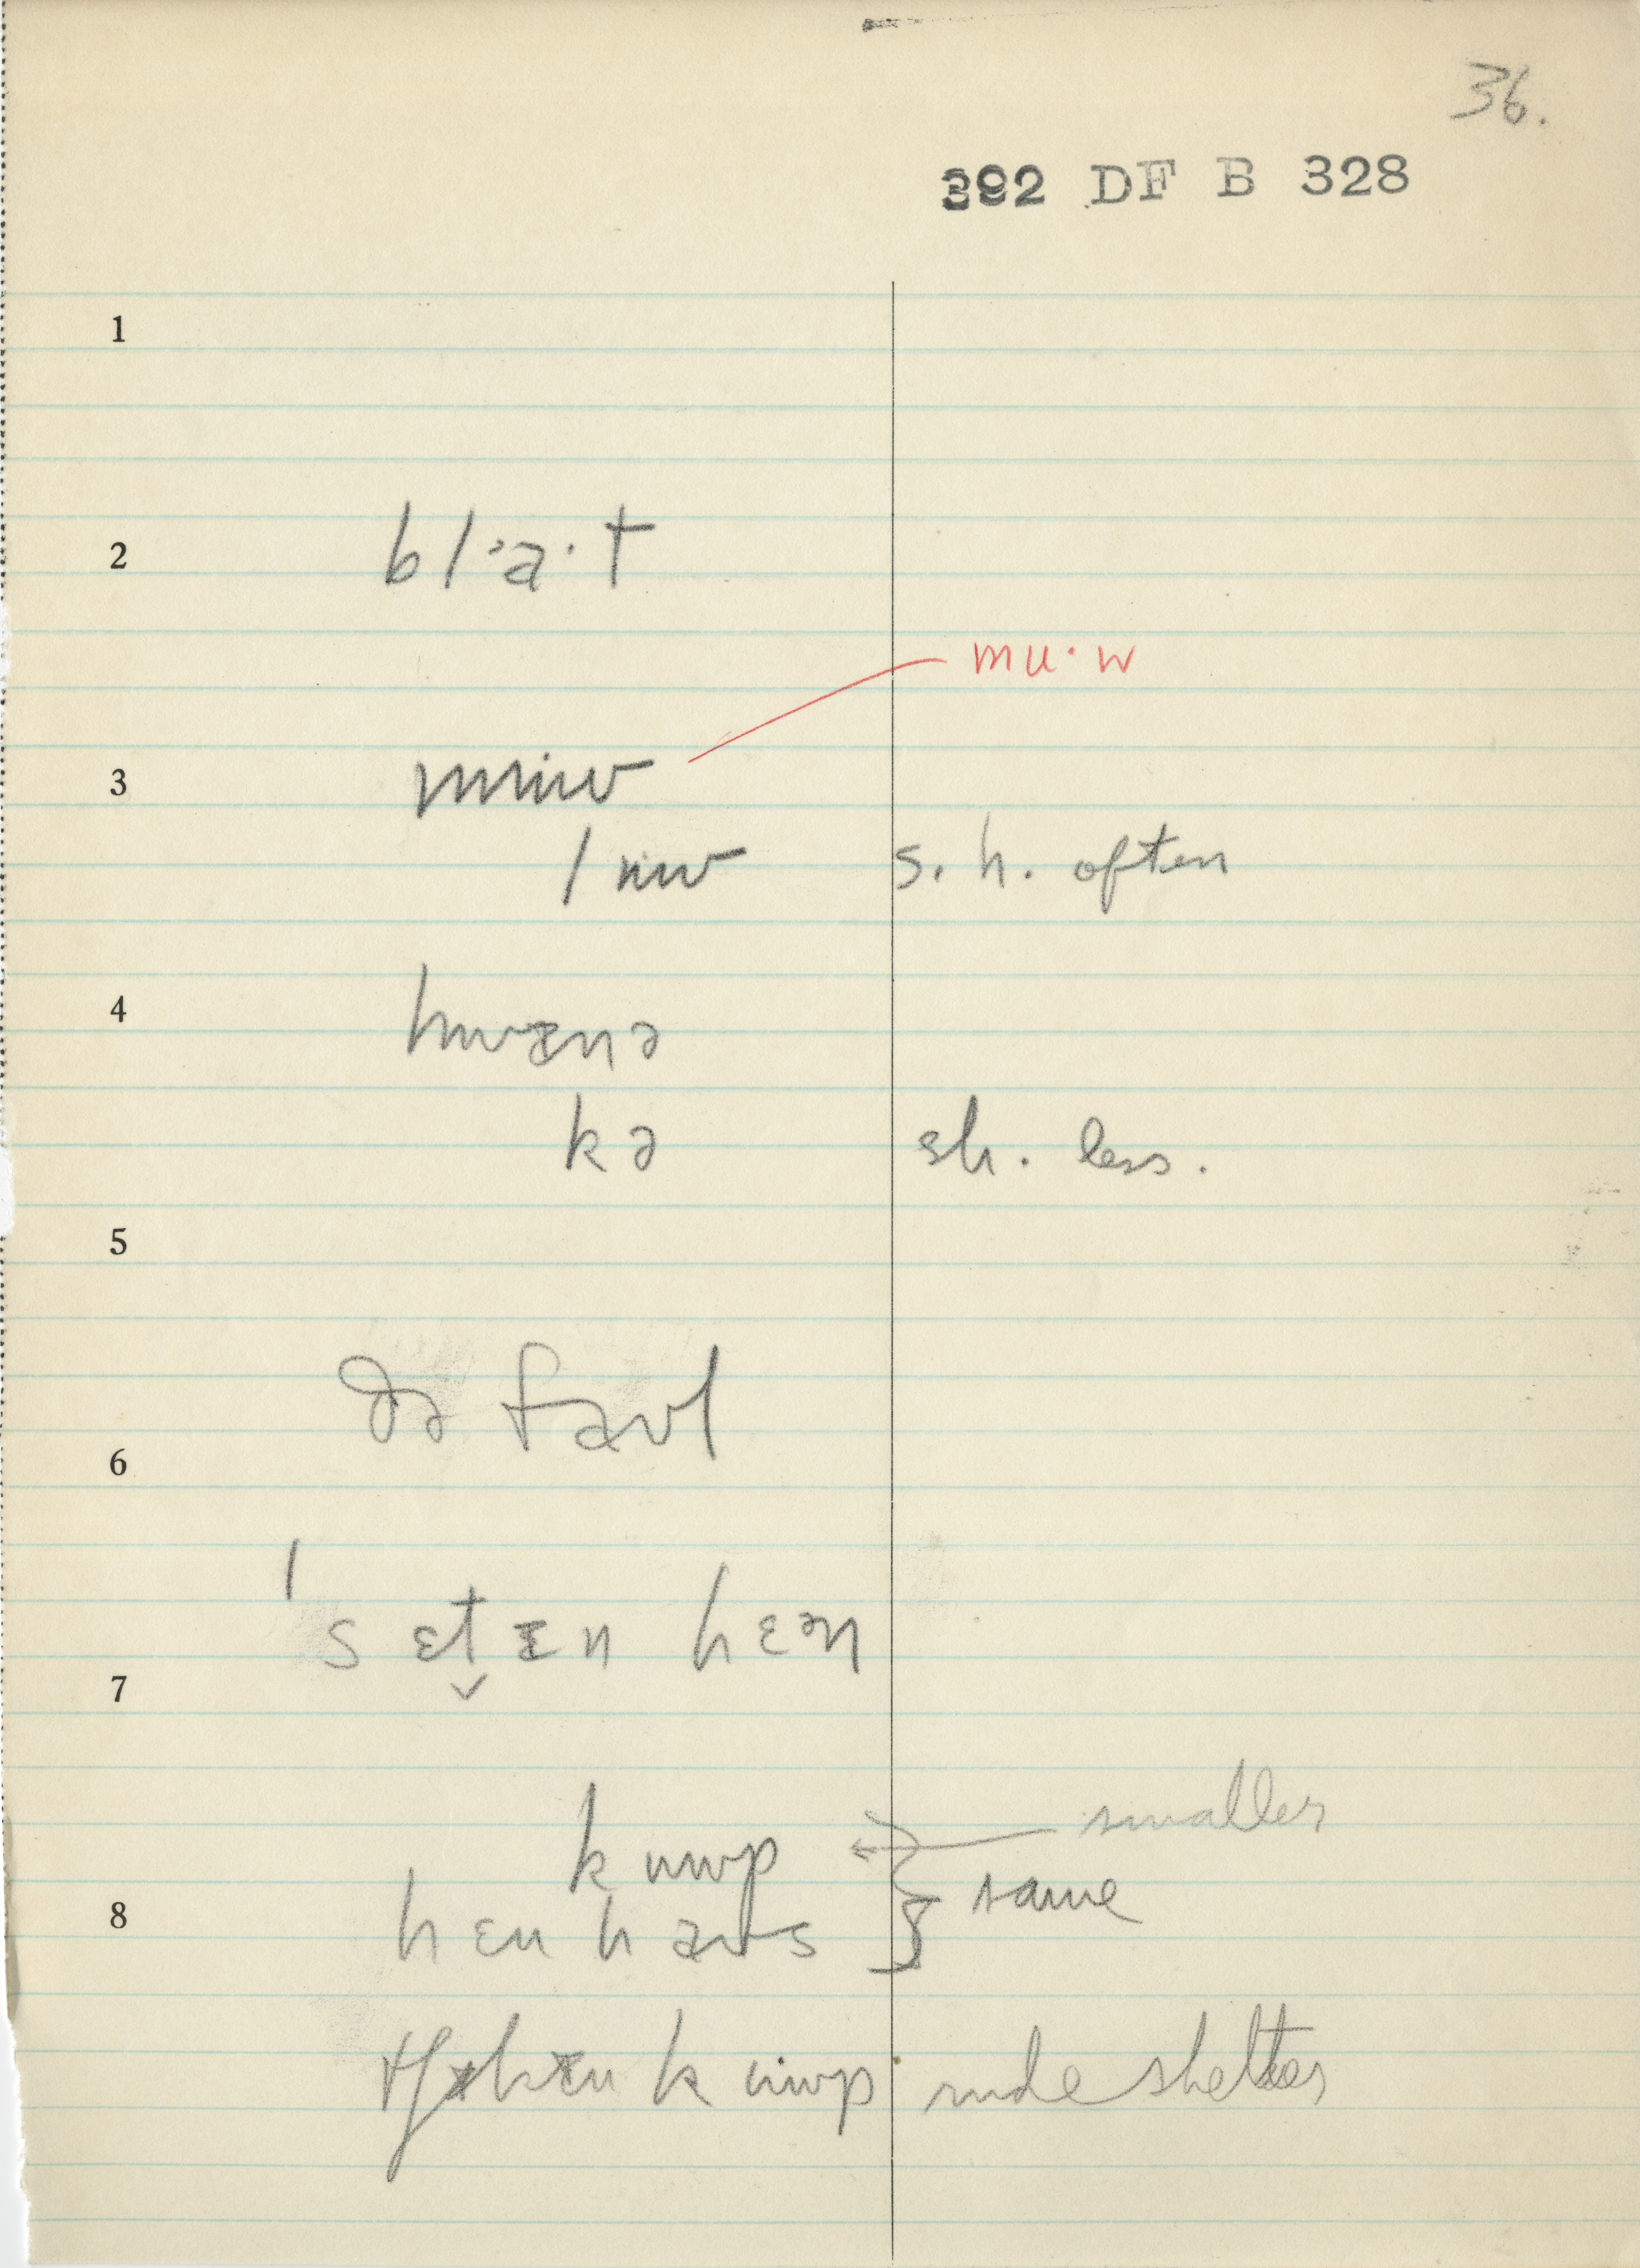 36.
392 DF B 328
1
2 bl·a·t
mu·w
3 muw
luw s. h. often
4 hwɪnə
kə sh. less.
5
ðə faʊl
6
ˈsɛt̬ɪn hɛən
7
kuwp smaller
8 hɛn haʊs } same
tʃɪkɪn kuwp rude shelter